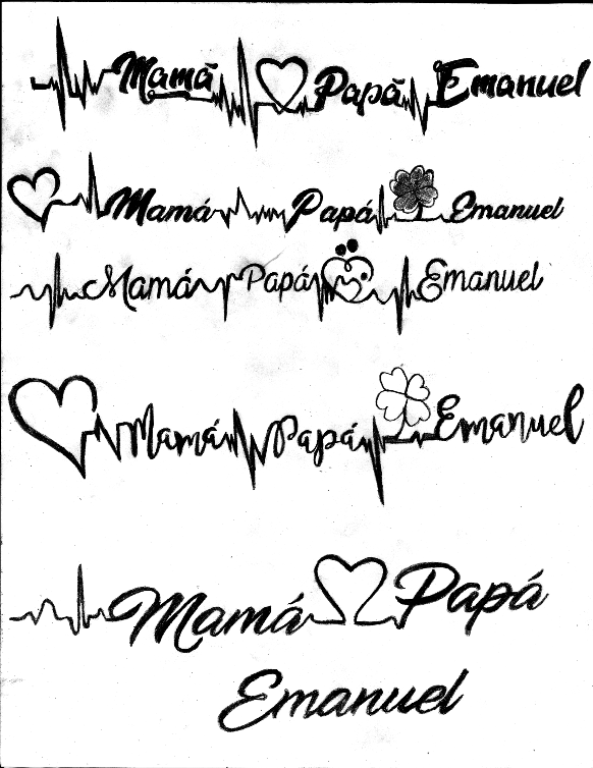 Mamá Papá Emanuel
Mamá Papá Emanuel
Mamá Papá Emanuel
Mamá Papá Emanuel
Mamá Papá
Emanuel